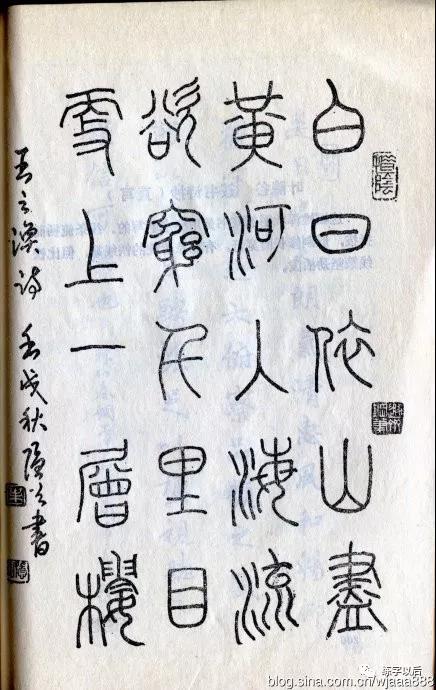 白日依山盡
黃河入海流
欲窮千里目
更上一層樓
王之渙詩 壬戌秋 書
练字以后
blog.sina.com.cn/wjaaa888